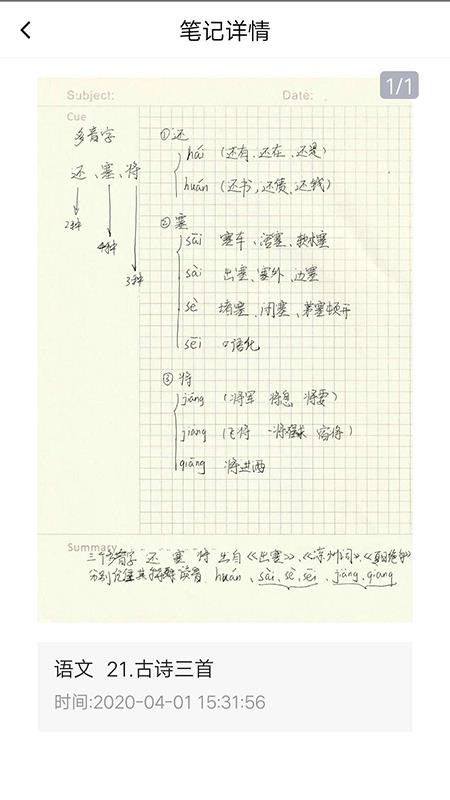 笔记详情
1/1
Subject:
Date:
Cue
多音字
还、塞、将
2种
4种
3种
①还
hái (还有、还在、还是)
huán (还书,还债,还钱)
②塞
sāi 塞车、活塞、软木塞
sài 出塞、塞外、边塞
sè 堵塞、闭塞、茅塞顿开
sēi 口语化
③将
jiāng (将军 将息 将要)
jiàng (飞将 一将难求
qiāng 将进酒
Summary
三个多音字 还 塞 将 出自《出塞》、《凉州词》、《夏日绝句》
分别 读音 huán、sāi、sè、sēi、jiāng、qiang
语文 21.古诗三首
时间:2020-04-01 15:31:56